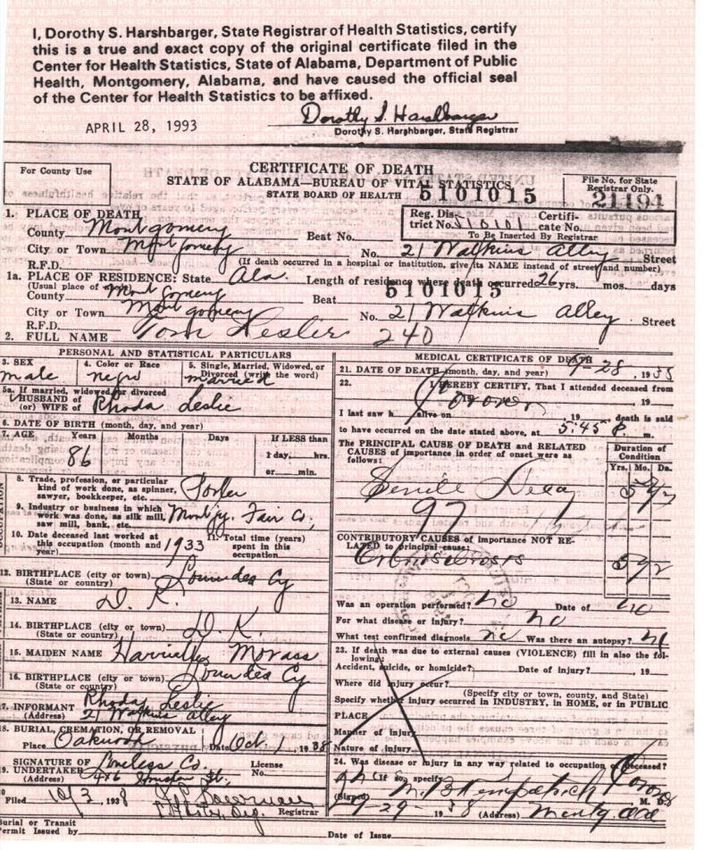 I, Dorothy S. Harshbarger, State Registrar of Health Statistics, certify
this is a true and exact copy of the original certificate filed in the
Center for Health Statistics, State of Alabama, Department of Public
Health, Montgomery, Alabama, and have caused the official seal
of the Center for Health Statistics to be affixed.
APRIL 28, 1993
Dorothy S. Harshbarger
Dorothy S. Harshbarger, State Registrar
For County Use
CERTIFICATE OF DEATH
STATE OF ALABAMA—BUREAU OF VITAL STATISTICS
STATE BOARD OF HEALTH
5101015
File No. for State
Registrar Only.
21494
1. PLACE OF DEATH
County Montgomery Beat No.
Reg. District No. 510101 Certificate No.
To Be Inserted By Registrar
City or Town Montgomery No. 21 Watkins Alley Street
R.F.D. (If death occurred in a hospital or institution, give its NAME instead of street and number)
1a. PLACE OF RESIDENCE: State Ala. Length of residence where death occurred 26 yrs. mos. days
(Usual place of
County Montgomery Beat 5101015
City or Town Montgomery No. 21 Watkins Alley Street
R.F.D.
2. FULL NAME Tom Lesler 240
PERSONAL AND STATISTICAL PARTICULARS
3. SEX
male
4. Color or Race
negro
5. Single, Married, Widowed, or
Divorced (write the word)
married
5a. If married, widowed or divorced
HUSBAND of
(or) WIFE of Rhoda Leslie
6. DATE OF BIRTH (month, day, and year)
7. AGE Years Months Days If LESS than
86 1 day, hrs.
or min.
8. Trade, profession, or particular
kind of work done, as spinner,
sawyer, bookkeeper, etc. Porter
9. Industry or business in which
work was done, as silk mill,
saw mill, bank, etc. Montgy. Fair Co;
10. Date deceased last worked at
this occupation (month and
year) 1933
11. Total time (years)
spent in this
occupation
12. BIRTHPLACE (city or town) Lowndes Cy
(State or country)
13. NAME D. K.
14. BIRTHPLACE (city or town) D. K.
(State or country)
15. MAIDEN NAME Morass
16. BIRTHPLACE (city or town) Lowndes Cy
(State or country)
17. INFORMANT Rhoda Leslie
(Address) 21 Watkins Alley
18. BURIAL, CREMATION, OR REMOVAL
Place Oakwood Date Oct. 1, 1938
SIGNATURE OF
19. UNDERTAKER Loveless Co. License No.
St.
Filed 10/3, 1938 Registrar
Burial or Transit
Permit Issued by Date of Issue
MEDICAL CERTIFICATE OF DEATH
21. DATE OF DEATH (month, day, and year) 9-28, 1938
22. I HEREBY CERTIFY, That I attended deceased from
Coroner, 19
I last saw h alive on , 19 death is said
to have occurred on the date stated above, at 5:45 P. m.
The PRINCIPAL CAUSE OF DEATH and RELATED
CAUSES of importance in order of onset were as
follows:
Duration of
Condition
Yrs. Mo. Da.
Senile Decay
97
CONTRIBUTORY CAUSES of importance NOT RE-
LATED to principal cause:
Was an operation performed? no Date of no
For what disease or injury? no
What test confirmed diagnosis no Was there an autopsy? no
23. If death was due to external causes (VIOLENCE) fill in also the fol-
lowing:
Accident, suicide, or homicide? Date of injury? 19
Where did injury occur?
(Specify city or town, county, and State)
Specify whether injury occurred in INDUSTRY, in HOME, or in PUBLIC
PLACE
Manner of injury
Nature of injury
24. Was disease or injury in any way related to occupation of deceased?
If so, specify
(Signed) M. B. Kirkpatrick M. D. Coroner
9-29- 1938 (Address) Montg. Ala